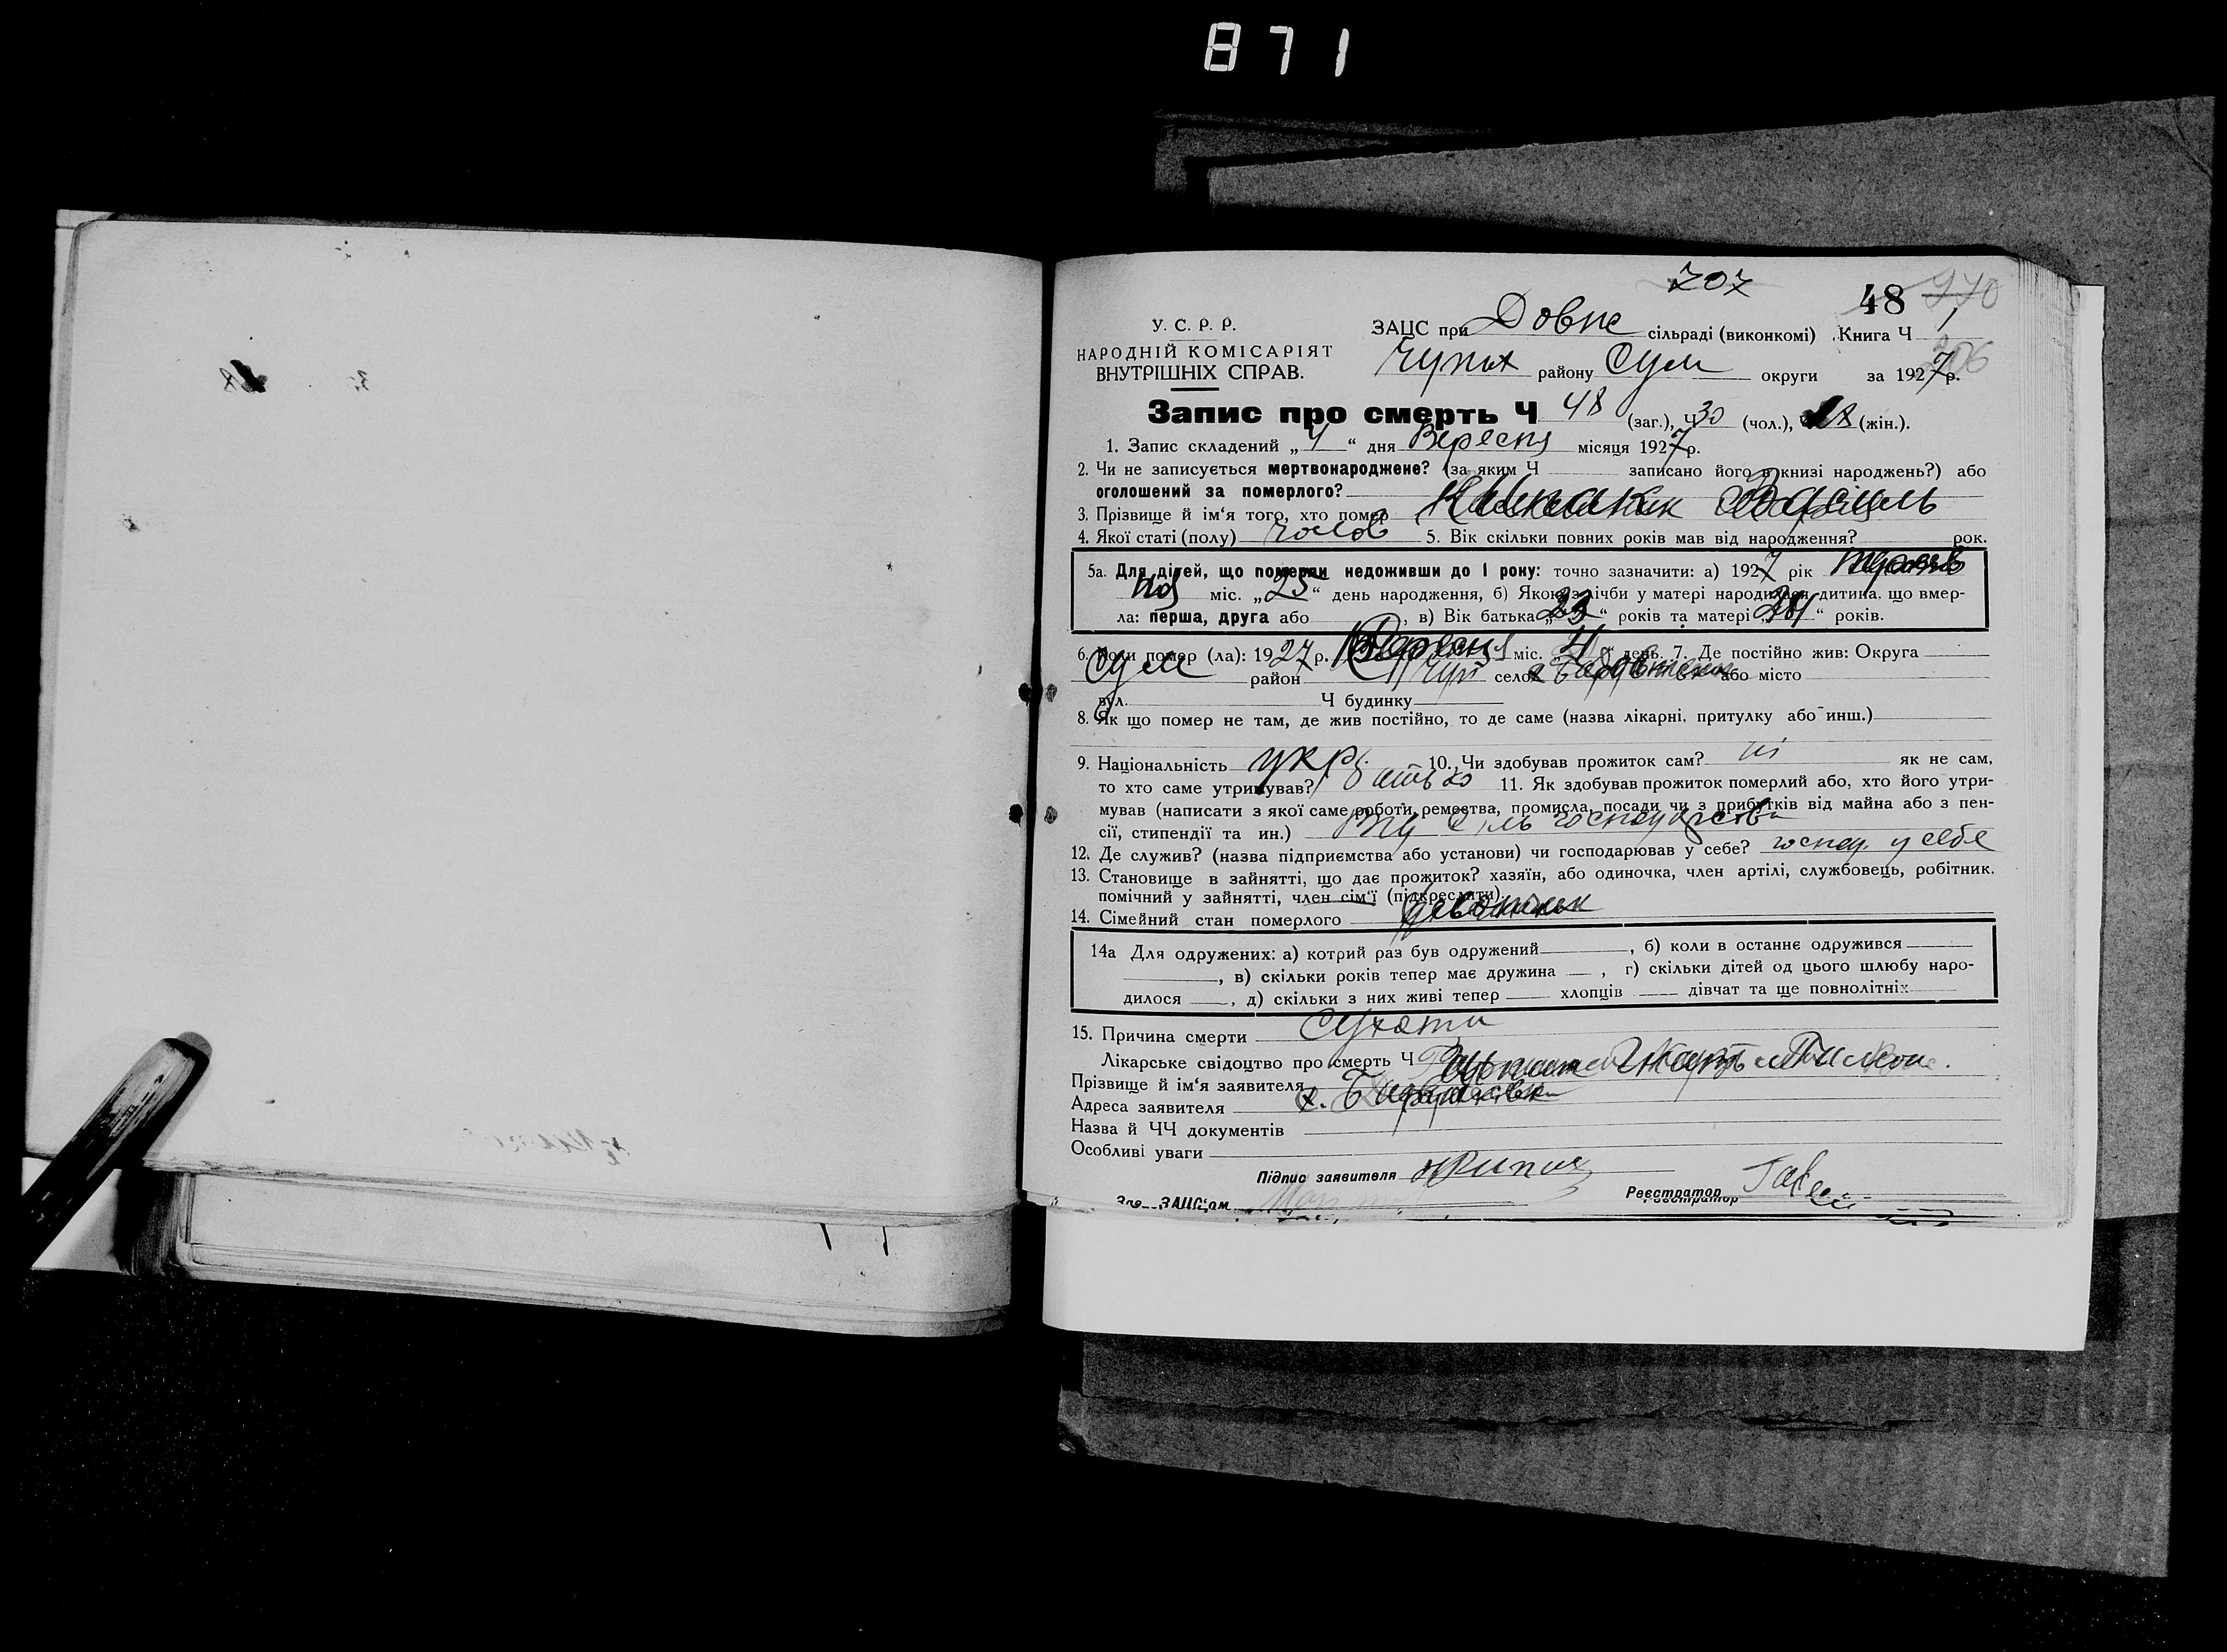 871
707
48 970
У. С. Р. Р.
НАРОДНІЙ КОМІСАРІЯТ
ВНУТРІШНІХ СПРАВ.
ЗАЦС при Довже сільраді (виконкомі) Книга Ч 1
206
району Сум округи за 1927 р.
Запис про смерть Ч 48 (заг.), Ч 30 (чол.), 18 (жін.).
1. Запис складений „4“ дня Вересня місяця 1927 р.
2. Чи не записується мертвонароджене? (за яким Ч записано його в книзі народжень?) або
оголошений за померлого?
3. Прізвище й ім'я того, хто помер Василь
4. Якої статі (полу) Чолов 5. Вік скільки повних років мав від народження? рок.
5а. Для дітей, що померли недоживши до 1 року: точно зазначити: а) 1927 рік
міс. „25“ день народження, б) Якою з лічби у матері народилася дитина, що вмер-
ла: перша, друга або , в) Вік батька „23“ років та матері „ “ років.
6. Коли помер (ла): 1927 р. Вересня міс. „4“ день. 7. Де постійно жив: Округа
Сум район Чуп село або місто
вул. Ч будинку
8. Як що помер не там, де жив постійно, то де саме (назва лікарні, притулку або инш.)
9. Національність укр. 10. Чи здобував прожиток сам? ні як не сам,
то хто саме утримував? батько 11. Як здобував прожиток померлий або, хто його утри-
мував (написати з якої саме роботи, ремества, промисла, посади чи з прибутків від майна або з пен-
сії, стипендії та ин.) сіль господарства
12. Де служив? (назва підприємства або установи) чи господарював у себе? господ. у себе
13. Становище в зайнятті, що дає прожиток? хазяїн, або одиночка, член артілі, службовець, робітник,
помічний у зайнятті, член сім'ї (підкреслити)
14. Сімейний стан померлого
14а Для одружених: а) котрий раз був одружений , б) коли в останнє одружився
, в) скільки років тепер має дружина , г) скільки дітей од цього шлюбу наро-
дилося , д) скільки з них живі тепер хлопців дівчат та ще повнолітніх
15. Причина смерти Сухоти
Лікарське свідоцтво про смерть Ч
Прізвище й ім'я заявителя
Адреса заявителя х.
Назва й ЧЧ документів
Особливі уваги
Підпис заявителя
Реєстратор
Зав. ЗАЦС'ом